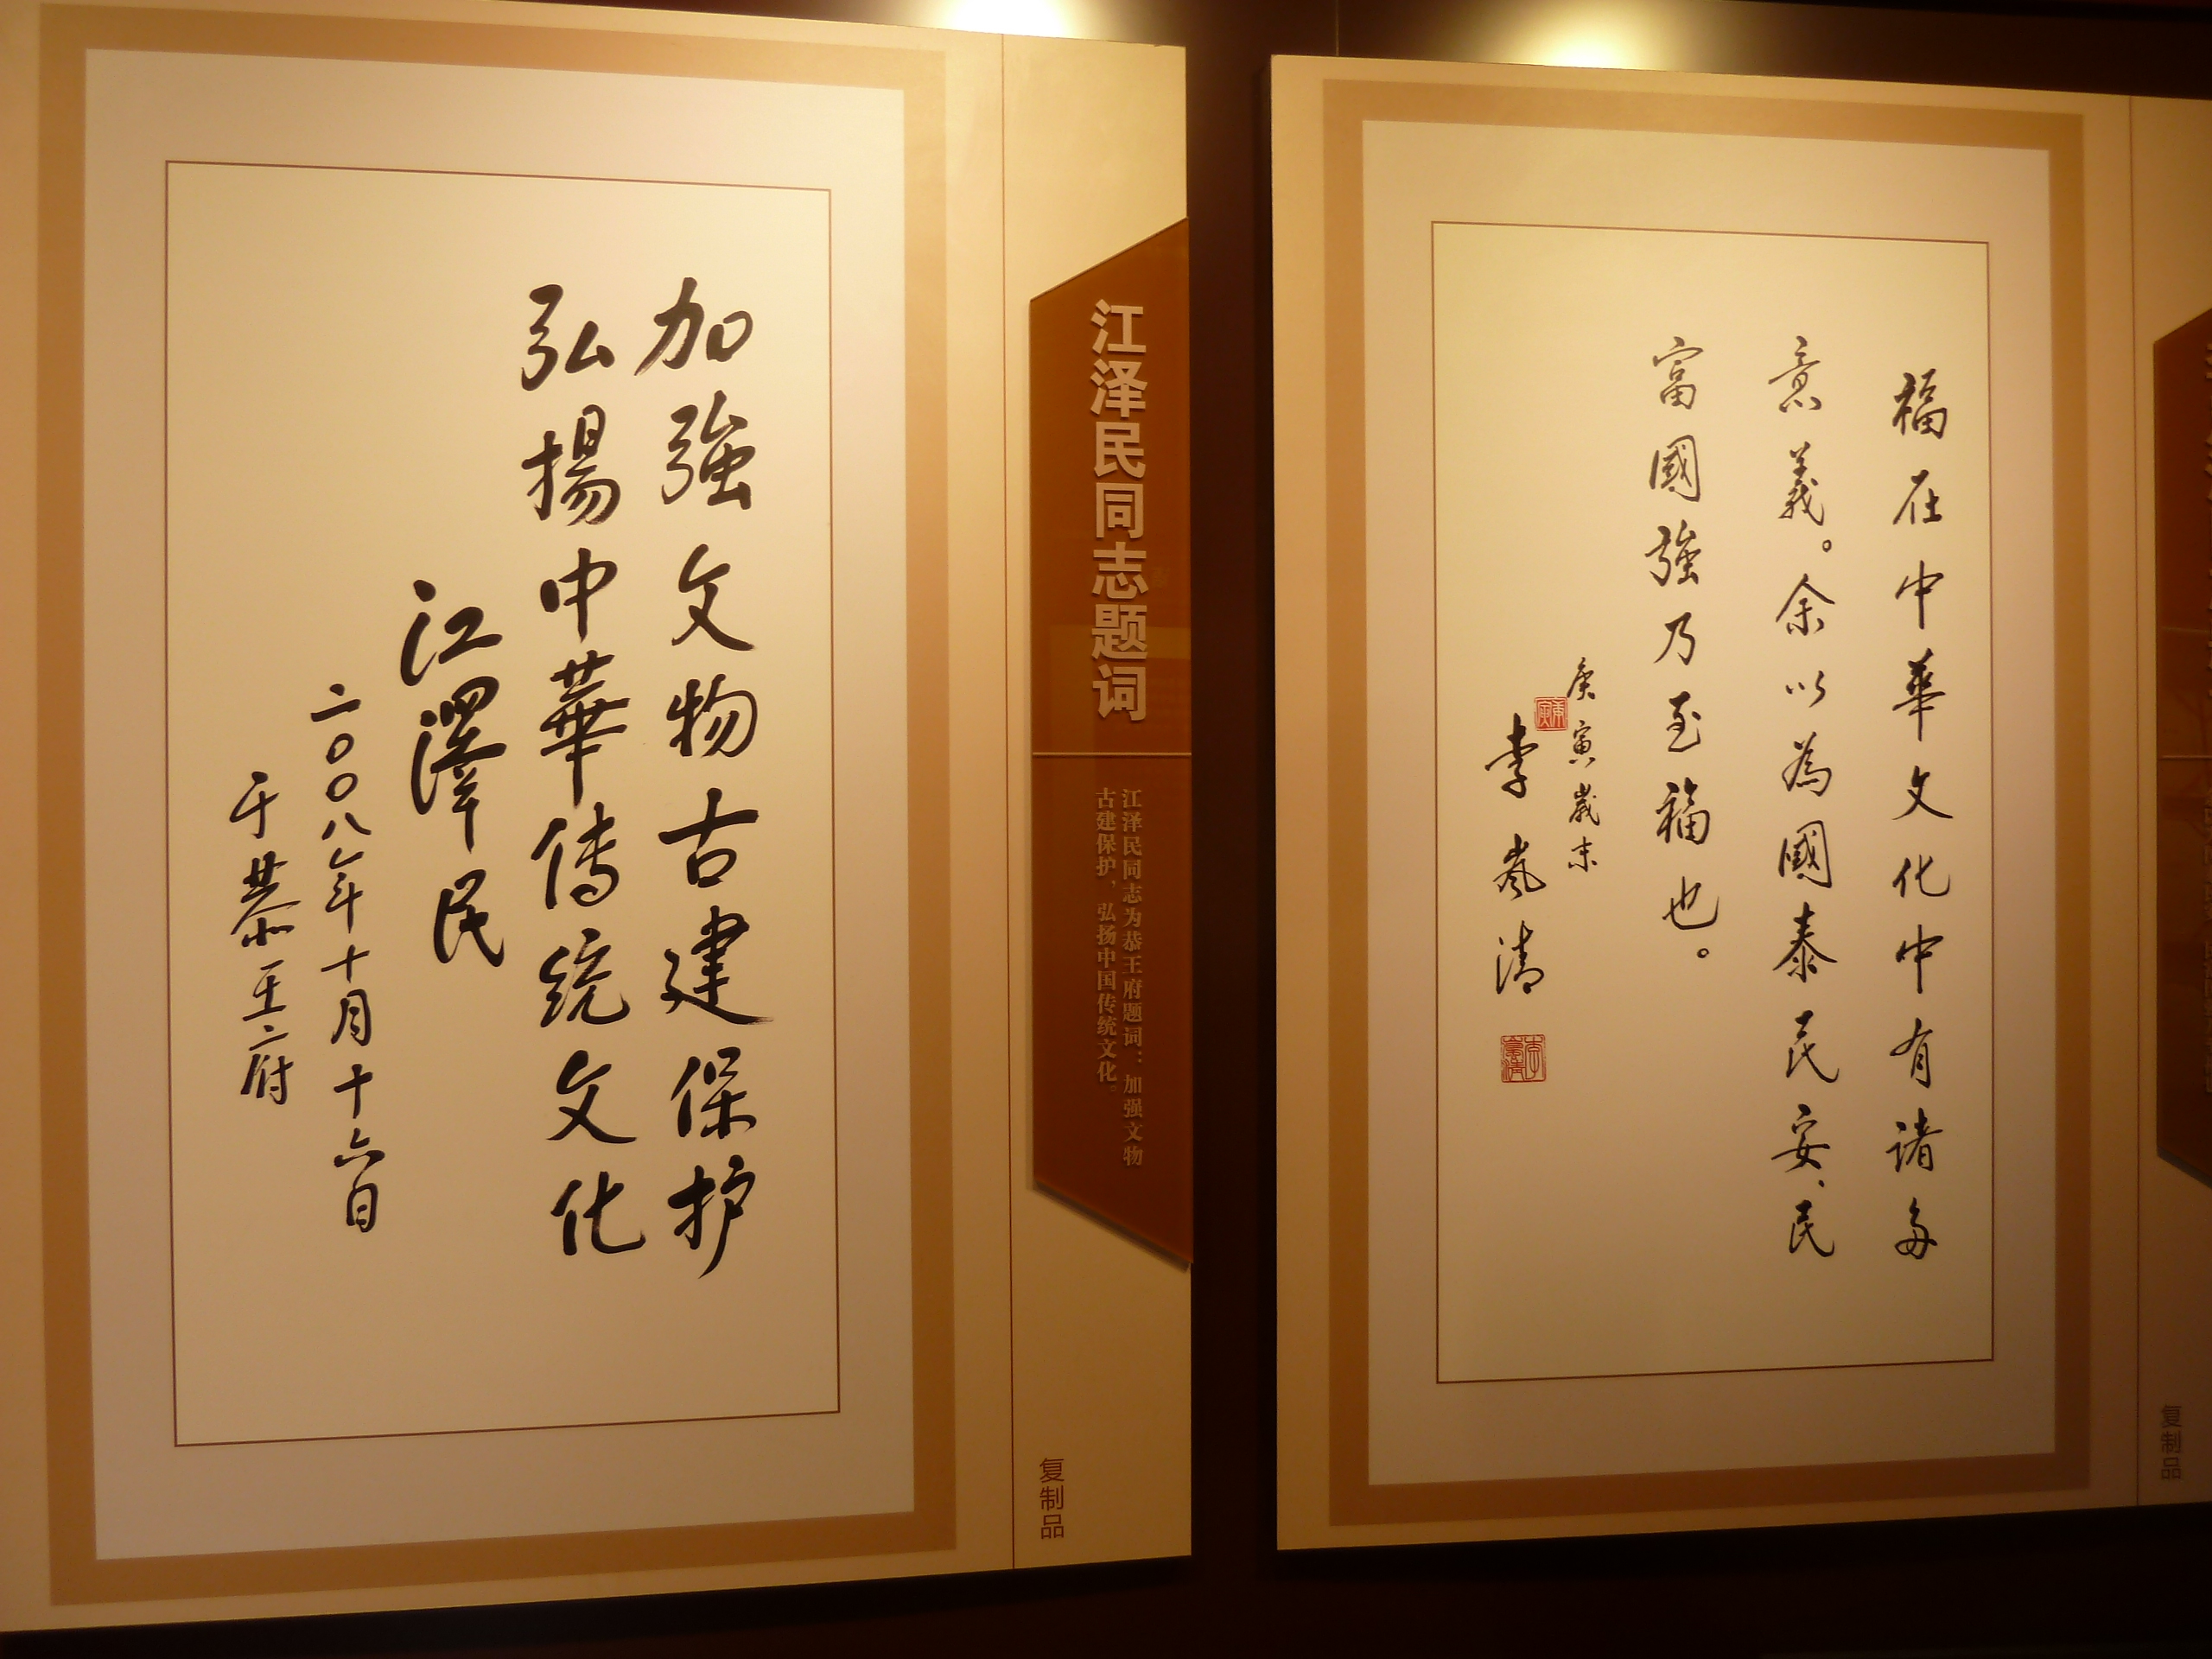 加強文物古建保护
弘揚中華傳統文化
江澤民
二〇〇八年十月十六日
于恭王府
江泽民同志题词
江泽民同志为恭王府题词：加强文物
古建保护，弘扬中国传统文化。
复制品
福在中華文化中有诸多
意義。余以為國泰民安、民
富國強乃至福也。
庚寅歲末
李嵐清
庚寅
李嵐清
复制品